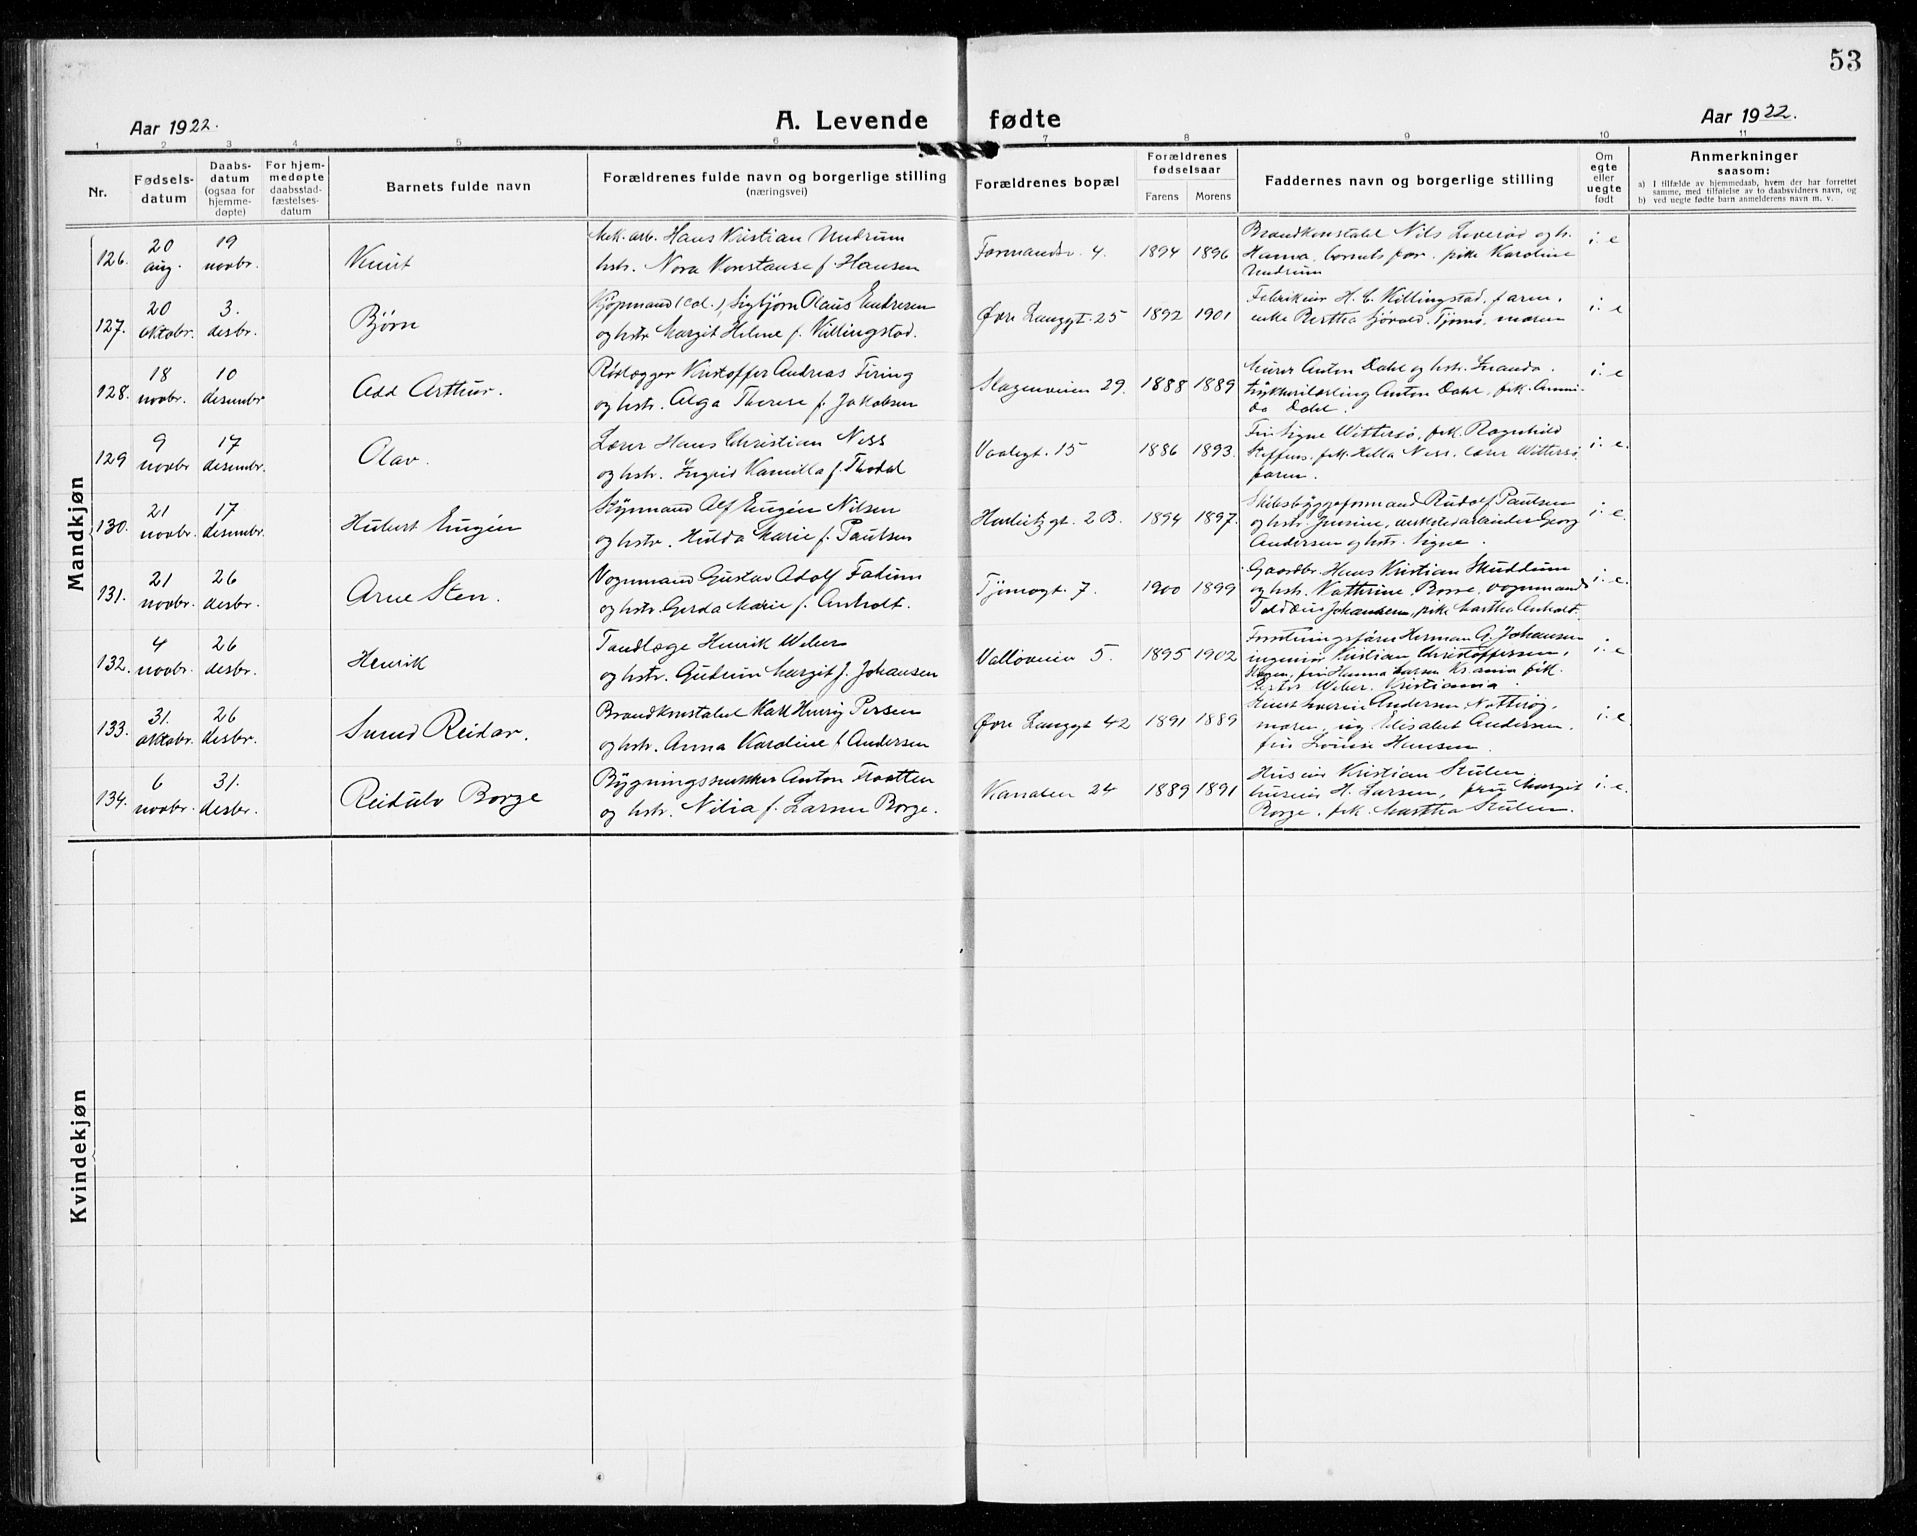 53
Aar 1922.
A. Levende fødte
Aar 1922.
1 2 3 4 5 6 7 8 9 10 11
Nr.
Fødsels-
datum
Daabs-
datum
(ogsaa for
hjemme-
døpte)
For hjem-
medøpte
daabsstad-
fæstelses-
datum
Barnets fulde navn
Forældrenes fulde navn og borgerlige stilling
(næringsvei)
Forældrenes bopæl
Forældrenes
fødselsaar
Farens Morens
Faddernes navn og borgerlige stilling
Om
egte
eller
uegte
født
Anmerkninger
saasom:
a) I tilfælde av hjemmedaab, hvem der har forrettet
samme, med tilføielse av to daabsvidners navn, og
b) ved uegte fødte barn anmelderens navn m. v.
Mandkjøn
126. 20 aug. 19 novbr. Knut
Mek. arb. Hans Kristian Undrum
hstr. Nora Konstanse f. Hansen
Formandsv. 4. 1894 1896
Brandkonstabel Nils Leverød og h.
Hanna, barnets far, pike Karoline
Undrum
i. e
127. 20 oktobr. 3. desbr. Bjørn
Kjøpmand (col.) Sigbjørn Olaus Endresen
og hstr. Margit Helene f. Killingstad.
Øvre Langgt. 25 1892 1901
Fabrikeier H. C. Killingstad, faren,
enke Bertha Sjøvold, Tjømø, moren
i. e
128. 18 novbr. 10 desembr Odd Arthur.
Rørlægger Kristoffer Andreas Firing
og hstr. Olga Therese f. Jakobsen
Slagenveien 29. 1888 1889
Murer Anton Dahl og hstr. Inanda.
trykkerilærling Anton Dahl, frk. Anni-
da Dahl.
i. e
129 9 novbr 17 desembr. Olav.
Lærer Hans Christian Ness
og hstr. Ingrid Kamilla f. Thodal
Vaalegt. 15 1886 1893.
Fru Signe Wittersø, frk. Ragnhild
Steffens, frk. Hella Ness, lærer Wittersø
faren.
i. e.
130. 21 novbr. 17 desembr. Hubert Eugén
Stýrmand Alf Eugén Nilsen
og hstr. Hilda Marie f. Paulsen
Halvitzgt. 2 B. 1894 1897.
Skibsbyggeformand Rudolf Paulsen
og hstr. Josine, verkstedarbeider Georg
Andersen og hstr. Signe.
i. e.
131. 21 novbr. 26 desbr. Arne Sten.
Vognmand Gustav Adolf Fadum
og hstr. Gerda Marie f. Anholt.
Tjømøgt. 7 1900 1899
Gaardbr. Hans Kristian Skullum
og hstr. Kathrine, Borre, vognmand
Taddæus Johansen, pike Martha Anholt.
i. e.
132. 4 novbr. 26 desbr. Henrik
Tandlæge Henrik Weber
og hstr. Gudrun Margit f. Johansen
Valløveien 5. 1895 1902
Forretningsfører Herman G. Johansen
ingeniør Kristian Christoffersen,
Skogen, fru Hanna Larsen Kr.ania frk.
Ester Weber, Kristiania.
i. e
133. 31. oktobr. 26 desbr. Svend Reidar.
Brandkonstabel Karl Henrij Persen
og hstr. Anna Karoline f Andersen
Øvre Langgt 42 1891 1889
Andersen Nøtterøy,
moren, ug. Elisabet Andersen,
fru Louise Hansen.
i. e.
134. 6 novbr. 31. desbr. Reidulv Borge
Bygningssnekker Anton Flaatten
og hstr. Nilia f. Larsen Borge.
Kanalen 24 1889 1891
Huseier Kristian Skulen,
huseier H. Larsen, fru Margit
Borge, frk. Martha Skulen.
i. e.
Kvindekjøn
4